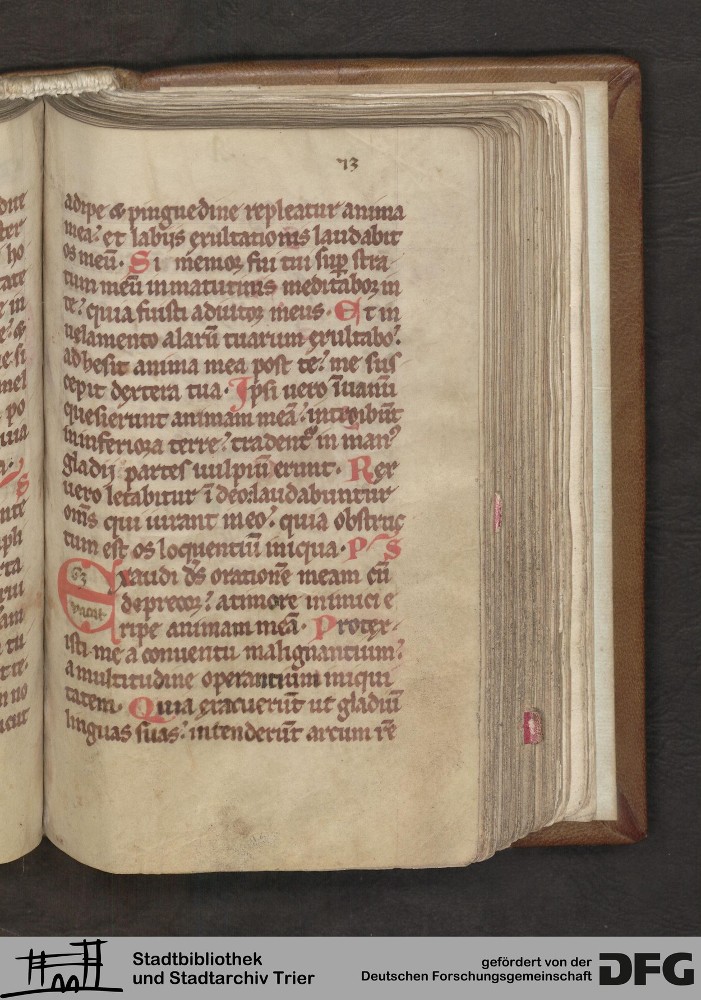 73
adipe & pinguedine repleatur anima
mea? et labijs exultationis laudabit
os meū. Si memor fui tui sup stra
tum meū in matutinis meditabor in
te? quia fuisti adiutor meus. Et in
uelamento alarū tuarum exultabo?
adhesit anima mea post te? me sus
cepit dextera tua. Ipsi uero ī uanū
quesierunt animam meā? introibūt
in inferiora terre? tradent in man⁹
gladij partes uulpiū erunt. Rex
uero letabitur ī deo: laudabuntur
om̄s qui iurant in eo? quia obstruc
tum est os loquentiū iniqua. PS
Exaudi ds orationē meam cū
deprecor? a timore inimici e
ripe animam meā. Protex
isti me a conuentu malignantium?
a multitudine operantium iniqui
tatem. Quia exacuerūt ut gladiū
linguas suas? intenderūt arcum rē
63
Stadtbibliothek
und Stadtarchiv Trier
gefördert von der
Deutschen Forschungsgemeinschaft
DFG